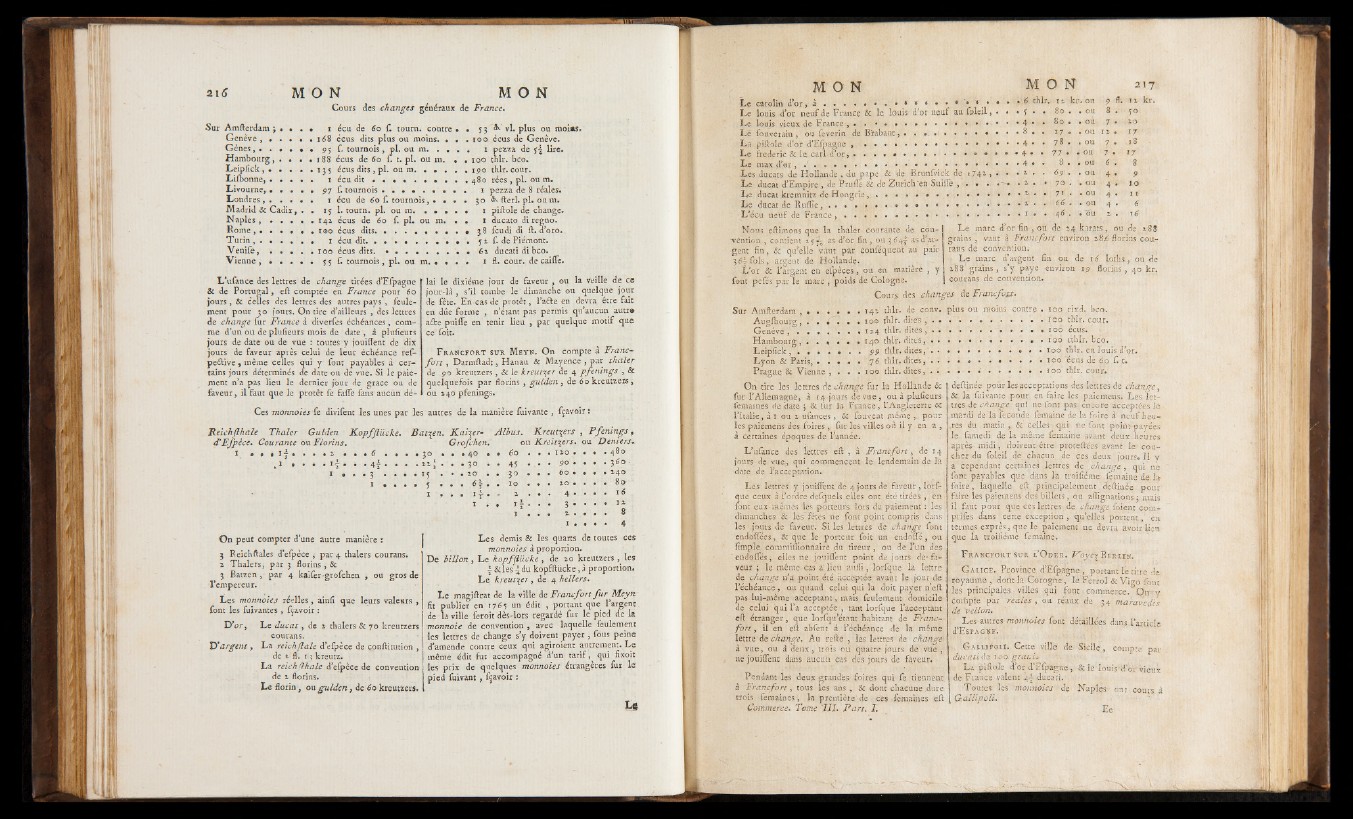 216 MON MON
Cours des changes généraux de France.
Sur Amſterdam ; . . . . 1 écu de 60 ſ. tourn. contre . . 53 ₰ vl. plus ou moins.
Genève , . . . . . 168 écus dits plus ou moins. . . . 100 écus de Genève.
Génes , . . . . . . 95 ſ. tournois , pl. ou m. . . . . 1 pezza de 5¾ lire.
Hambourg , . . . . 188 écus de 60 ſ. t. pl. ou m. . . 100 thlr. bco.
Leipſick , . . . . . 135 écus dits , pl. ou m. . . . . . 190 thlr. cour.
Liſbonne, . . . . . 1 écu dit . . . . . . . . . . 480 rées , pl. ou m.
Livourne, . . . . . 97 ſ. tournois . . . . . . . . . 1 pezza de 8 réales.
Londres , . . . . . 1 écu de 60 ſ. tournois, . . . . 30 ₰ ſterl. pl. ou m.
Madrid & Cadix, . . 15 l. tourn. pl. ou m. . . . . . 1 piſtole de change.
Naples , . . . . . 142 écus de 60 ſ. pl. ou m. . . 1 ducato di regno.
Rome , . . . . . . 100 écus dits. . . . . . . . . . 38 ſcudi di ſt. d'oro.
Turin , . . . . . . 1 écu dit. . . . . . . . . . . 52 ſ. de Piémont.
Veniſe , . . . . . 100 écus dits. . . . . . . . . . 62 ducati di bco.
Vienne , . . . . . 55 ſ. tournois , pl. ou m. . . . . 1 fl. cour. de caiſſe.
L'uſance des lettres de change tirées d'Eſpagne
& de Portugal , eſt comptée en France pour 60
jours , & celles des lettres des autres pays , ſeule-
ment pour 30 jours. On tire d'ailleurs , des lettres
de change ſur France à diverſes échéances , com-
me d'un ou de pluſieurs mois de date , à pluſieurs
jours de date ou de vue : toutes y jouiſſent de dix
jours de faveur après celui de leur échéance reſ-
pective , même celles qui y ſont payables à cer-
tains jours déterminés de date ou de vue. Si le paie-
ment n'a pas lieu le dernier jour de grace ou de
faveur , il faut que le protêt ſe faſſe ſans aucun dé-
lai le dixiéme jour de faveur , ou la veille de ce
jour-là , s'il tombe le dimanche ou quelque jour
de fête. En cas de protêt , l'acte en devra être fait
en düe forme , n'étant pas permis qu'aucun autre
acte puiſſe en tenir lieu , par quelque motif que
ce ſoit.
FRANCFORT SUR MEYN. On compte à Franc-
fort , Darmſtadt , Hanau & Mayence , par thaler
de 90 kreutzers , & le kreutzer de 4 pfenings , &
quelquefois par florins , gulden , de 60 kreutzers ,
ou 240 pfenings.
Ces monnoies ſe diviſent les unes par les autres de la manière ſuivante , ſçavoir :
Reichſthale Thaler Gulden Kopfſtücke. Batzen. Kaizer- Albus. Kreutzers , Pfenings ,
d'Eſpèce. Courante ou Florins. Groſchen. ou Kreitzers. ou Deniers.
1 . . . 1⅓ . . . . 2 . . . 6 . . . . 30 . . . 40 . . 60 . . . 120 . . . . 480
1 . . . . 1½ . . . 4½ . . . . 22½ . . . 30 . . 45 . . . 90 . . . . 360
1 . . . 3 . . . . 15 . . . 20 . . 30 . . . 60 . . . . 240
1 . . . . 5 . . . 6⅔ . . 10 . . . 20 . . . . 80
1 . . . 1⅓ . . 2 . . . 4 . . . . 16
1 . . 1½ . . . 3 . . . . 12
1 . . . 2 . . . . 8
1 . . . . 4
On peut compter d'une autre manière :
3 Reichſtales d'eſpèce , par 4 thalers courans.
2 Thalers , par 3 florins , &
3 Batzen , par 4 kaiſer-groſchen , ou gros de
l'empereur.
Les monnoies réelles , ainſi que leurs valeurs ,
ſont les ſuivantes , ſçavoir :
D'or, Le ducat , de 2 thalers & 70 kreutzers
courans.
D'argent , La reichſtale d'eſpèce de conſtitution ,
de 2 fl. 13 kreutz.
La reichſthale d'eſpèce de convention
de 2 florins.
Le florin , ou gulden , de 60 kreutzers.
Les demis & les quarts de toutes ces
monnoies à proportion.
De billon , Le kopfſtücke , de 20 kreutzers , les
½ & les ¼ du kopfſtucke, à proportion.
Le kreutzer , de 4 hellers.
Le magiſtrat de la ville de Francfort ſur Meyn
fit publier en 1765 un édit , portant que l'argent
de la ville ſeroit dès-lors regardé ſur le pied de la
monnoie de convention , avec laquelle ſeulement
les lettres de change s'y doivent payer , ſous peine
d'amende contre ceux qui agiroient autrement. Le
même édit fut accompagné d'un tarif , qui fixoit
les prix de quelques monnoies étrangères ſur le
pied ſuivant , ſçavoir :
Le
MON MON 217
Le carolin d'or, à . . . . . . . . . . . . . . . . . 6 thlr. 12 kr. ou 9 fl. 12 kr.
Le louis d'or neuf de France & le louis d'or neuf au ſoleil , . . . 5 . . 80 . . ou 8 . 50
Le louis vieux de France , . . . . . . . . . . . . . . . . . 4 . . 80 . . ou 7 . 20
Le ſouverain , ou ſeverin de Brabant , . . . . . . . . . . . . 8 . . 17 . . ou 12 . 17
La piſtole d'or d'Eſpagne , . . . . . . . . . . . . . . . . . 4 . . 78 . . ou 7 . 18
Le frederic & le carl d'or, . . . . . . . . . . . . . . . . . 4 . . 77 . . ou 7 . 17
Le max d'or , . . . . . . . . . . . . . . . . . . . . . . . 4 . . 8 . . ou 6 . 8
Les ducats de Hollande , du pape & de Brunſvick de 1742 , . . . 2 . . 69 . . ou 4 . 9
Le ducat d'Empire , de Pruſſe & de Zurich en Suiſſe , . . . . . 2 . . 70 . . ou 4 . 10
Le ducat kremnitz de Hongrie , . . . . . . . . . . . . . . . 2 . . 71 . . ou 4 . 11
Le ducat de Ruſſie , . . . . . . . . . . . . . . . . . . . . 2 . . 66 . . ou 4 . 6
L'écu neuf de France , . . . . . . . . . . . . . . . . . . . 1 . . 46 . . ou 2 . 16
Nous eſtimons que la thaler courante de con-
vention , contient as d'or fin , ou as d'ar-
gent fin , & qu'elle vaut par conſéquent au pair
ſols , argent de Hollande.
L'or & l'argent en eſpèces , ou en matière , y
ſont peſés par le marc , poids de Cologne.
Le marc d'or fin , ou de 24 karats , ou de 288
grains , vaut à Francfort environ 286 florins cou-
rans de convention.
Le marc d'argent fin ou de 16 loths , ou de
288 grains , s'y paye environ 19 florins , 40 kr.
courans de convention.
Cours des changes de Francfort.
Sur Amſterdam , . . . . . . 142 thlr. de conv. plus ou moins contre . 100 rixd. bco.
Augſbourg , . . . . . . 100 thlr. dites , . . . . . . . . . . . . 100 thlr. cour.
Genève , . . . . . . . 124 thlr. dites , . . . . . . . . . . . . 100 écus.
Hambourg , . . . . . . 140 thlr. dites , . . . . . . . . . . . . 100 thlr. bco.
Leipſick , . . . . . . . 99 thlr. dites , . . . . . . . . . . . . 100 thlr. en louis d'or.
Lyon & Paris, . . . . . 76 thlr. dites , . . . . . . . . . . . . 100 écus de 60 ſ. t.
Prague & Vienne , . . . 100 thlr. dites , . . . . . . . . . . . . 100 thlr. cour.
On tire les lettres de change ſur la Hollande &
ſur l'Allemagne, à 14 jours de vue , ou à pluſieurs
ſemaines de date ; & ſur la France , l'Angleterre &
l'Italie , à 1 ou 2 uſances , & ſouvent même , pour
les paiemens des foires , ſur les villes où il y en a ,
à certaines époques de l'année.
L'uſance des lettres eſt , à Francfort , de 14
jours de vue, qui commencent le lendemain de la
date de l'acceptation.
Les lettres y jouiſſent de 4 jours de faveur , lorſ-
que ceux à l'ordre deſquels elles ont été tirées , en
ſont eux mêmes les porteurs lors du paiement : les
dimanches & les fêtes ne ſont point compris dans
les jours de faveur. Si les lettres de change ſont
endoſſées , & que le porteur ſoit un endoſſé , ou
ſimple commiſſionnaire du tireur , ou de l'un des
endoſſés , elles ne jouiſſent point de jours de fa-
veur ; le même cas a lieu auſſi , lorſque la lettre
de change n'a point été acceptée avant le jour de
l'échéance , ou quand celui qui la doit payer n'eſt
pas lui-même acceptant , mais ſeulement domicile
de celui qui l'a acceptée , tant lorſque l'acceptant
eſt étranger , que lorſqu'étant habitant de Franc-
fort , il en eſt abſent à l'échéance de la même
lettre de change. Au reſte , les lettres de change
à vue , ou à deux , trois ou quatre jours de vue ,
ne jouiſſent dans aucun cas des jours de faveur.
Pendant les deux grandes foires qui ſe tiennent
à Francfort , tous les ans , & dont chacune dure
trois ſemaines , la première de ces ſemaines eſt
deſtinée pour les acceptations des lettres de change ,
& la ſuivante pour en faire les paiemens. Les let-
tres de change qui ne ſont pas encore acceptées le
mardi de la ſeconde ſemaine de la foire à neuf heu-
res du matin , & celles qui ne ſont point payées
le ſamedi de la même ſemaine avant deux heures
après midi , doivent être proteſtées avant le cou-
cher du ſoleil de chacun de ces deux jours. Il y
a cependant certaines lettres de change , qui ne
ſont payables que dans la troiſième ſemaine de la
foire , laquelle eſt principalement deſtinée pour
faire les paiemens des billets , ou aſſignations ; mais
il faut pour que ces lettres de change ſoient com-
priſes dans cette exception , qu'elles portent , en
termes exprès , que le paiement ne devra avoir lieu
que la troiſième ſemaine.
FRANCFORT SUR L'ODER. Voyez BERLIN.
GALICE. Province d'Eſpagne , portant le titre de
royaume , dont la Corogne , le Ferrol & Vigo ſont
les principales villes qui font commerce. On y
compte par reales , ou réaux de 34 maravedis
de veillon.
Les autres monnoies ſont détaillées dans l'article
d'ESPAGNE.
GALLIPOLI. Cette ville de Sicile , compte par
ducati de 100 grains.
La piſtole d'or d'Eſpagne , & le louis d'or vieux
de France valent 4½ ducati.
Toutes les monnoies de Naples ont cours à
Gallipoli.
Commerce. Tome III. Part. I. Ee